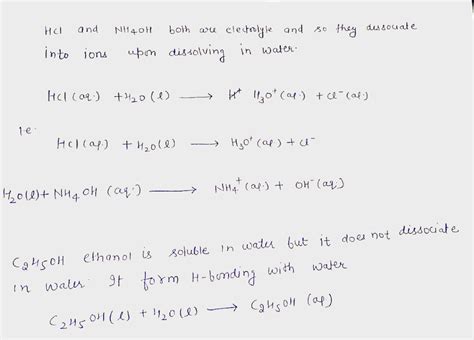 HCl and NH4OH both are electrolyte and so they dissociate
into ions upon dissolving in water.
HCl (aq.) + H2O (l) ⟶ H3O⁺ (aq.) + Cl⁻ (aq.)
i.e.
HCl (aq.) + H2O (l) ⟶ H3O⁺ (aq) + Cl⁻
H2O(l) + NH4OH (aq.) ⟶ NH4⁺ (aq.) + OH⁻ (aq.)
C2H5OH ethanol is soluble in water but it does not dissociate
in water. It form H-bonding with water
C2H5OH (l) + H2O (l) ⟶ C2H5OH (aq)